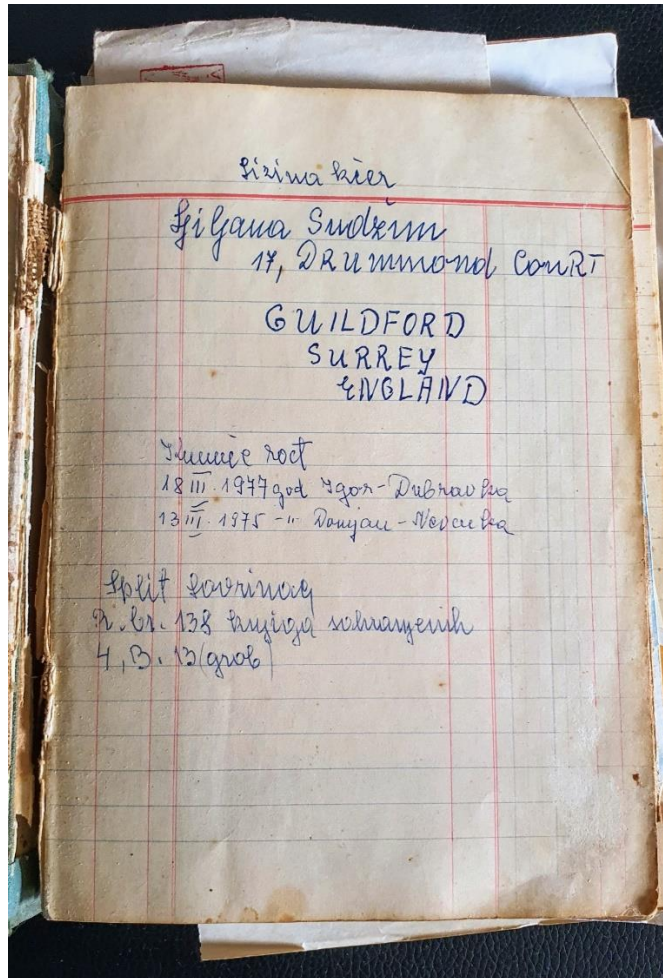 kćer
Ljiljana Sudžum
17, DRummond CouRT
GUILDFORD
SURREY
ENGLAND
18 III. 1977 god Igor - Dubravka
13 III. 1975 -"- Damjan - Nevenka
Split Lovrinac
R. br. 138 knjiga sahranjenih
4, B. 13 (grob)